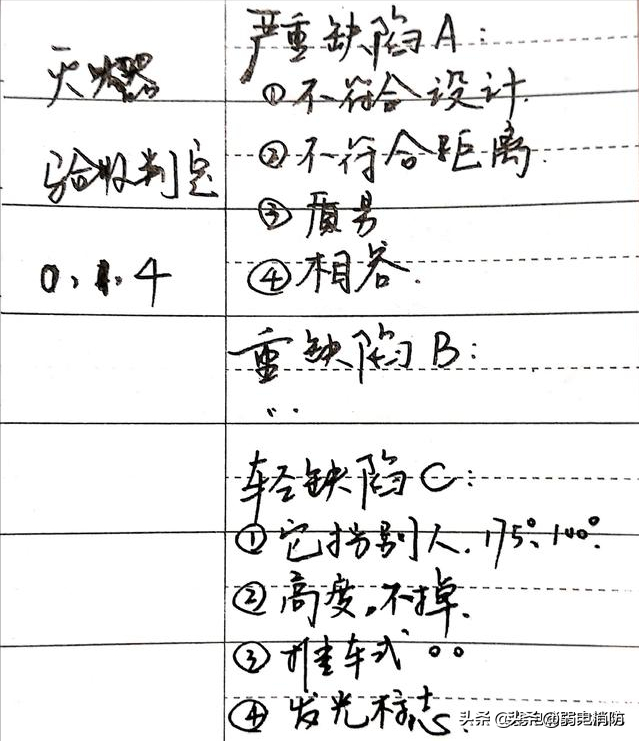 灭火器
验收判定
0、1、4
严重缺陷A:
①不符合设计.
②不符合距离.
③质量
④相容.
重缺陷B:
..
轻缺陷C:
①它挡别人.175°、100°.
②高度,不掉.
③推车式 。。
④发光标志.
头条 @弱电消防